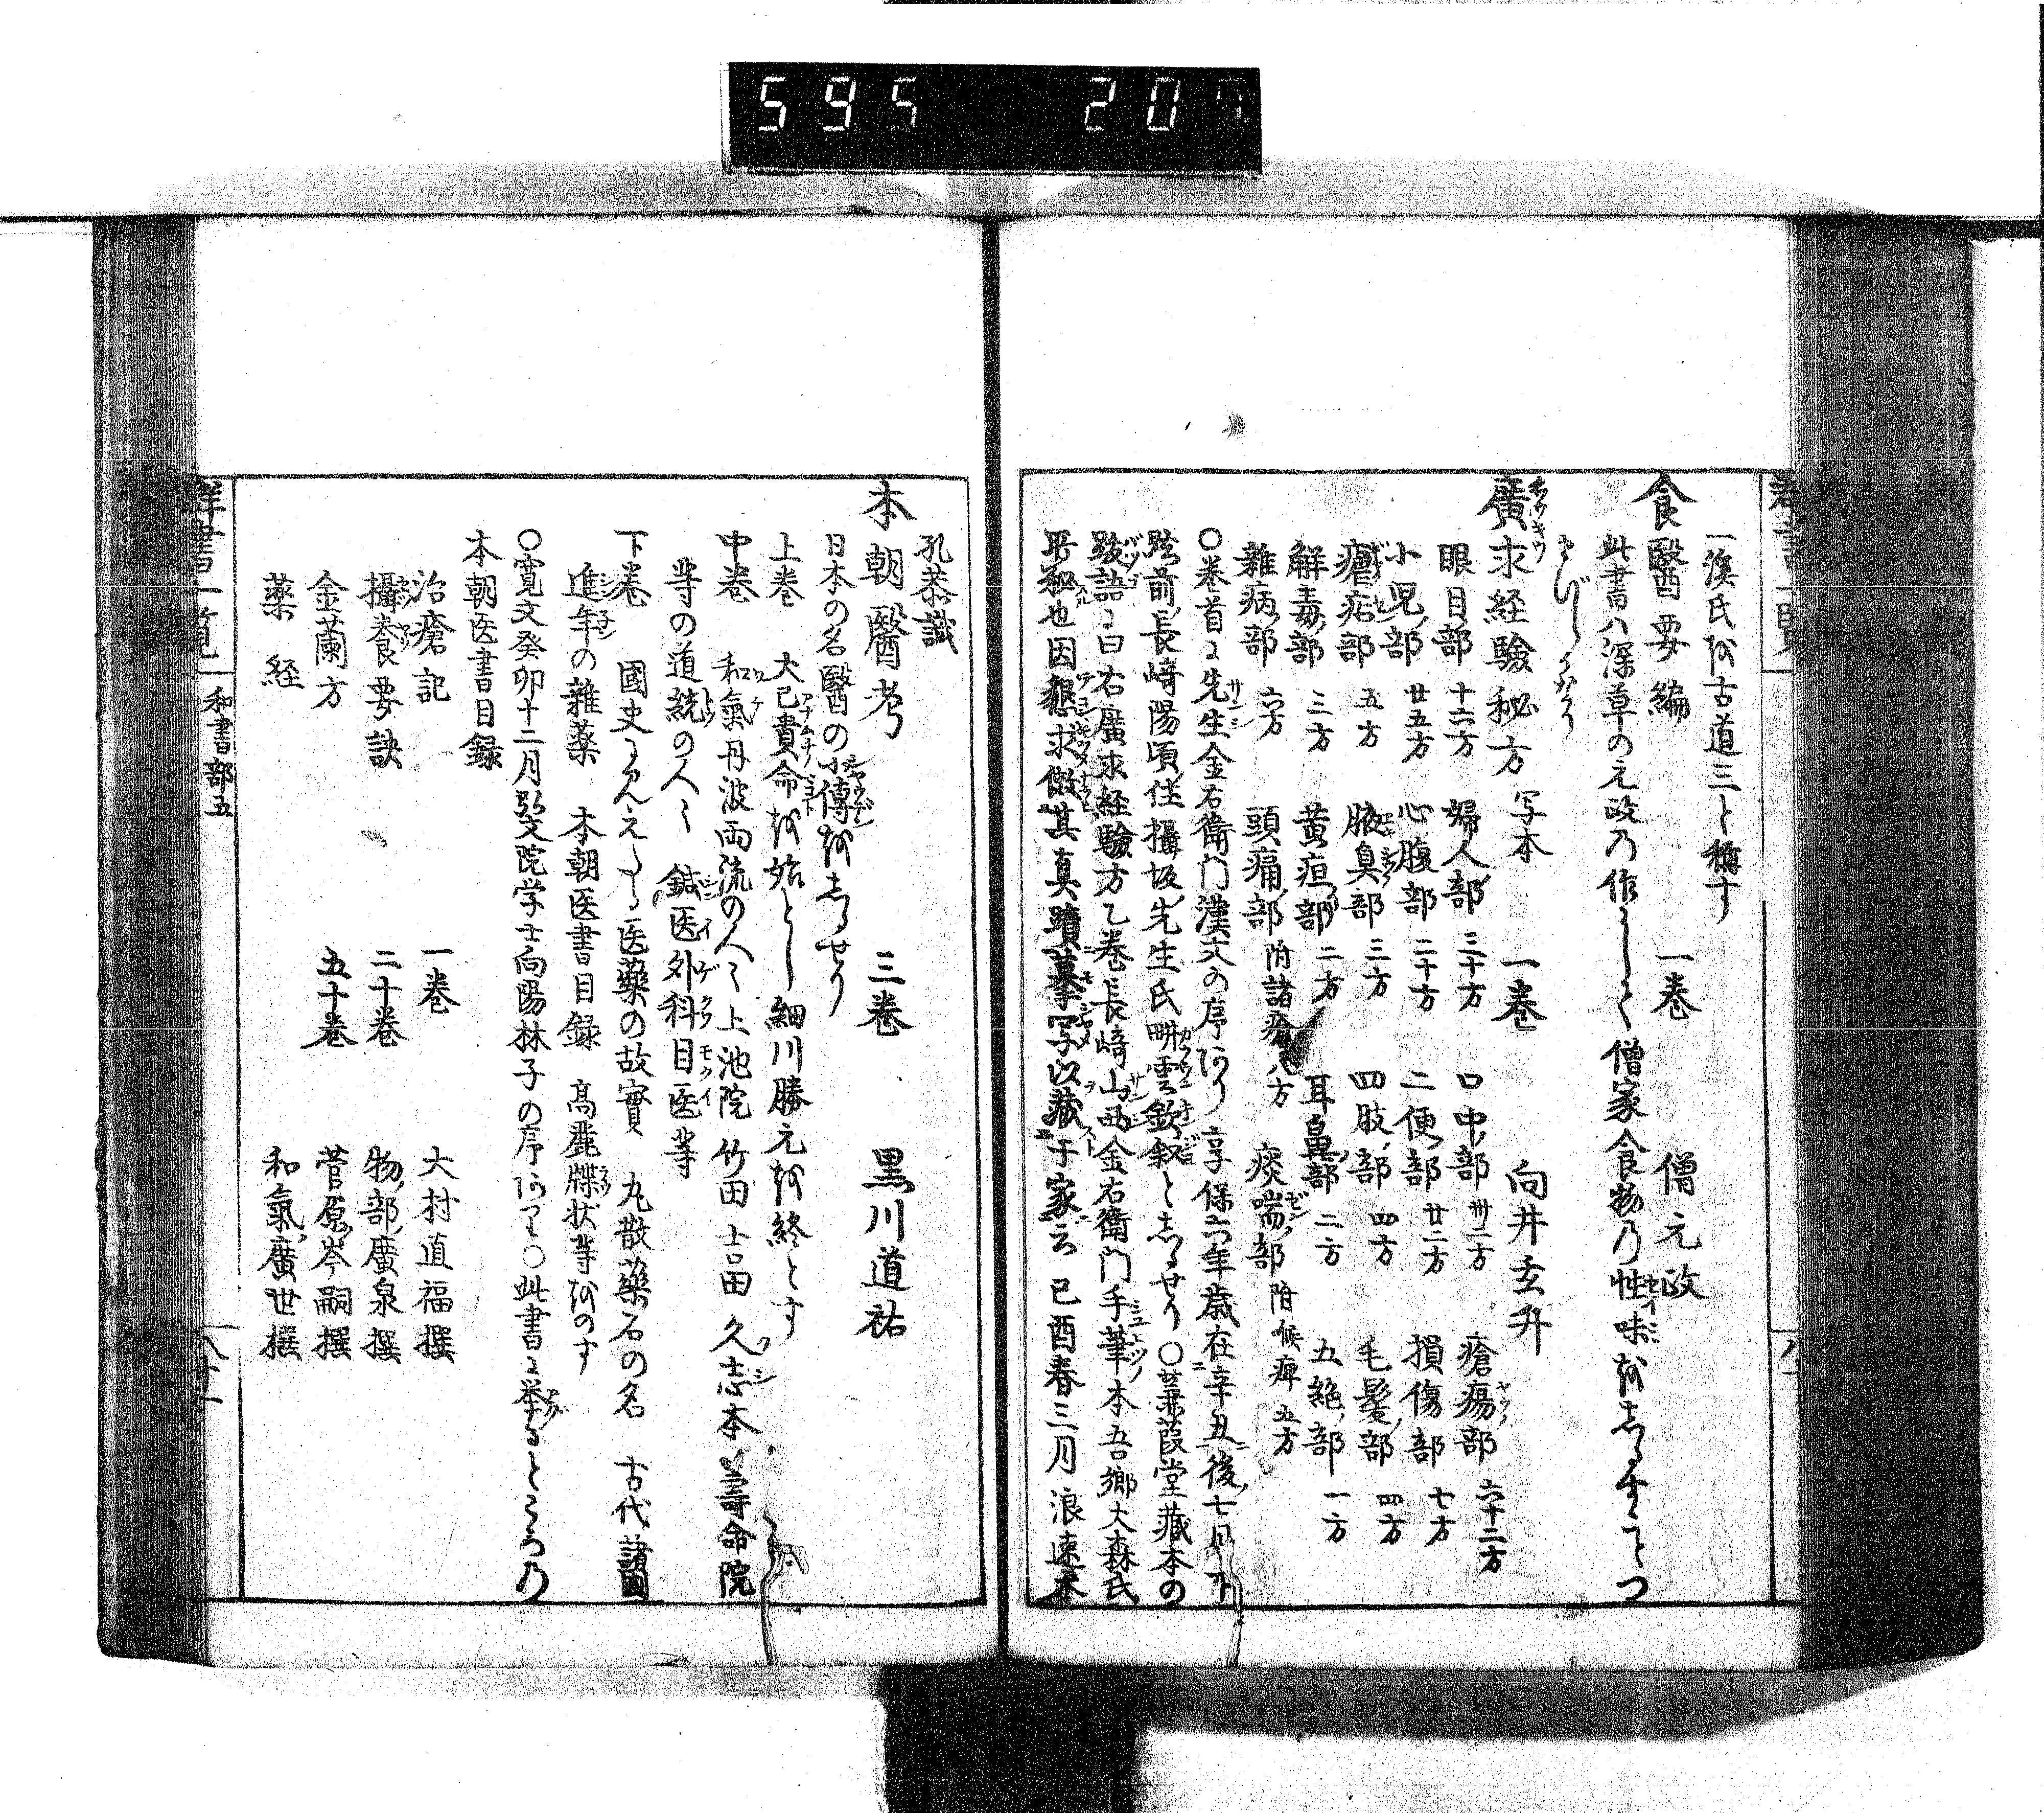 595 20
一溪氏を古道三と稱す
食醫要編 一巻 僧元政
此書ハ深草の元政乃作にして僧家食物乃性味をしるす
廣求経驗秘方 写本 一巻 向井玄升
眼目部 十六方 婦人部 三十方 口中部 卅一方 瘡瘍部 六十二方
小児部 廿五方 心腹部 二十方 二便部 廿二方 損傷部 七方
瘧疟部 五方 腋臭部 三方 四肢部 四方 毛髪部 四方
解毒部 三方 黄疸部 二方 耳鼻部 二方 五絶部 一方
雜病部 六方 頭痛部 附諸瘡八方 痰喘部 附候痺五方
○巻首に先生金右衛門漢文の序あり享保六年歳在辛丑後七月下
眩前長﨑陽頃住攝坂先生氏畊雲欽叙としるせり○蒹葭堂藏本の
跋語に曰右廣求経驗方乙巻長﨑山西金右衛門手筆本吾郷大森氏
所秘也因懇求倣其真蹟摹写以藏于家云 己酉春三月 浪速木
孔恭識
本朝醫考 三巻 黒川道祐
日本の名醫の小傳をしるせり
上巻 大己貴命を始とし細川勝元を終とす
中巻 和氣丹波両流の人々上池院 竹田 吉田 久志本 壽命院
等の道統の人々 鍼医外科目医等
下巻 國史に見えたる医藥の故實 丸散藥石の名 古代諸國
進年の雜薬 本朝医書目録 髙麗牒状等をのす
○寛文癸卯十二月弘文院学士向陽林子の序あり○此書に挙るところ乃
本朝医書目録
治瘡記 一巻 大村直福撰
攝養要訣 二十巻 物部廣泉撰
金蘭方 五十巻 菅原岑嗣撰
薬経 和氣廣世撰
群書一覧 和書部五